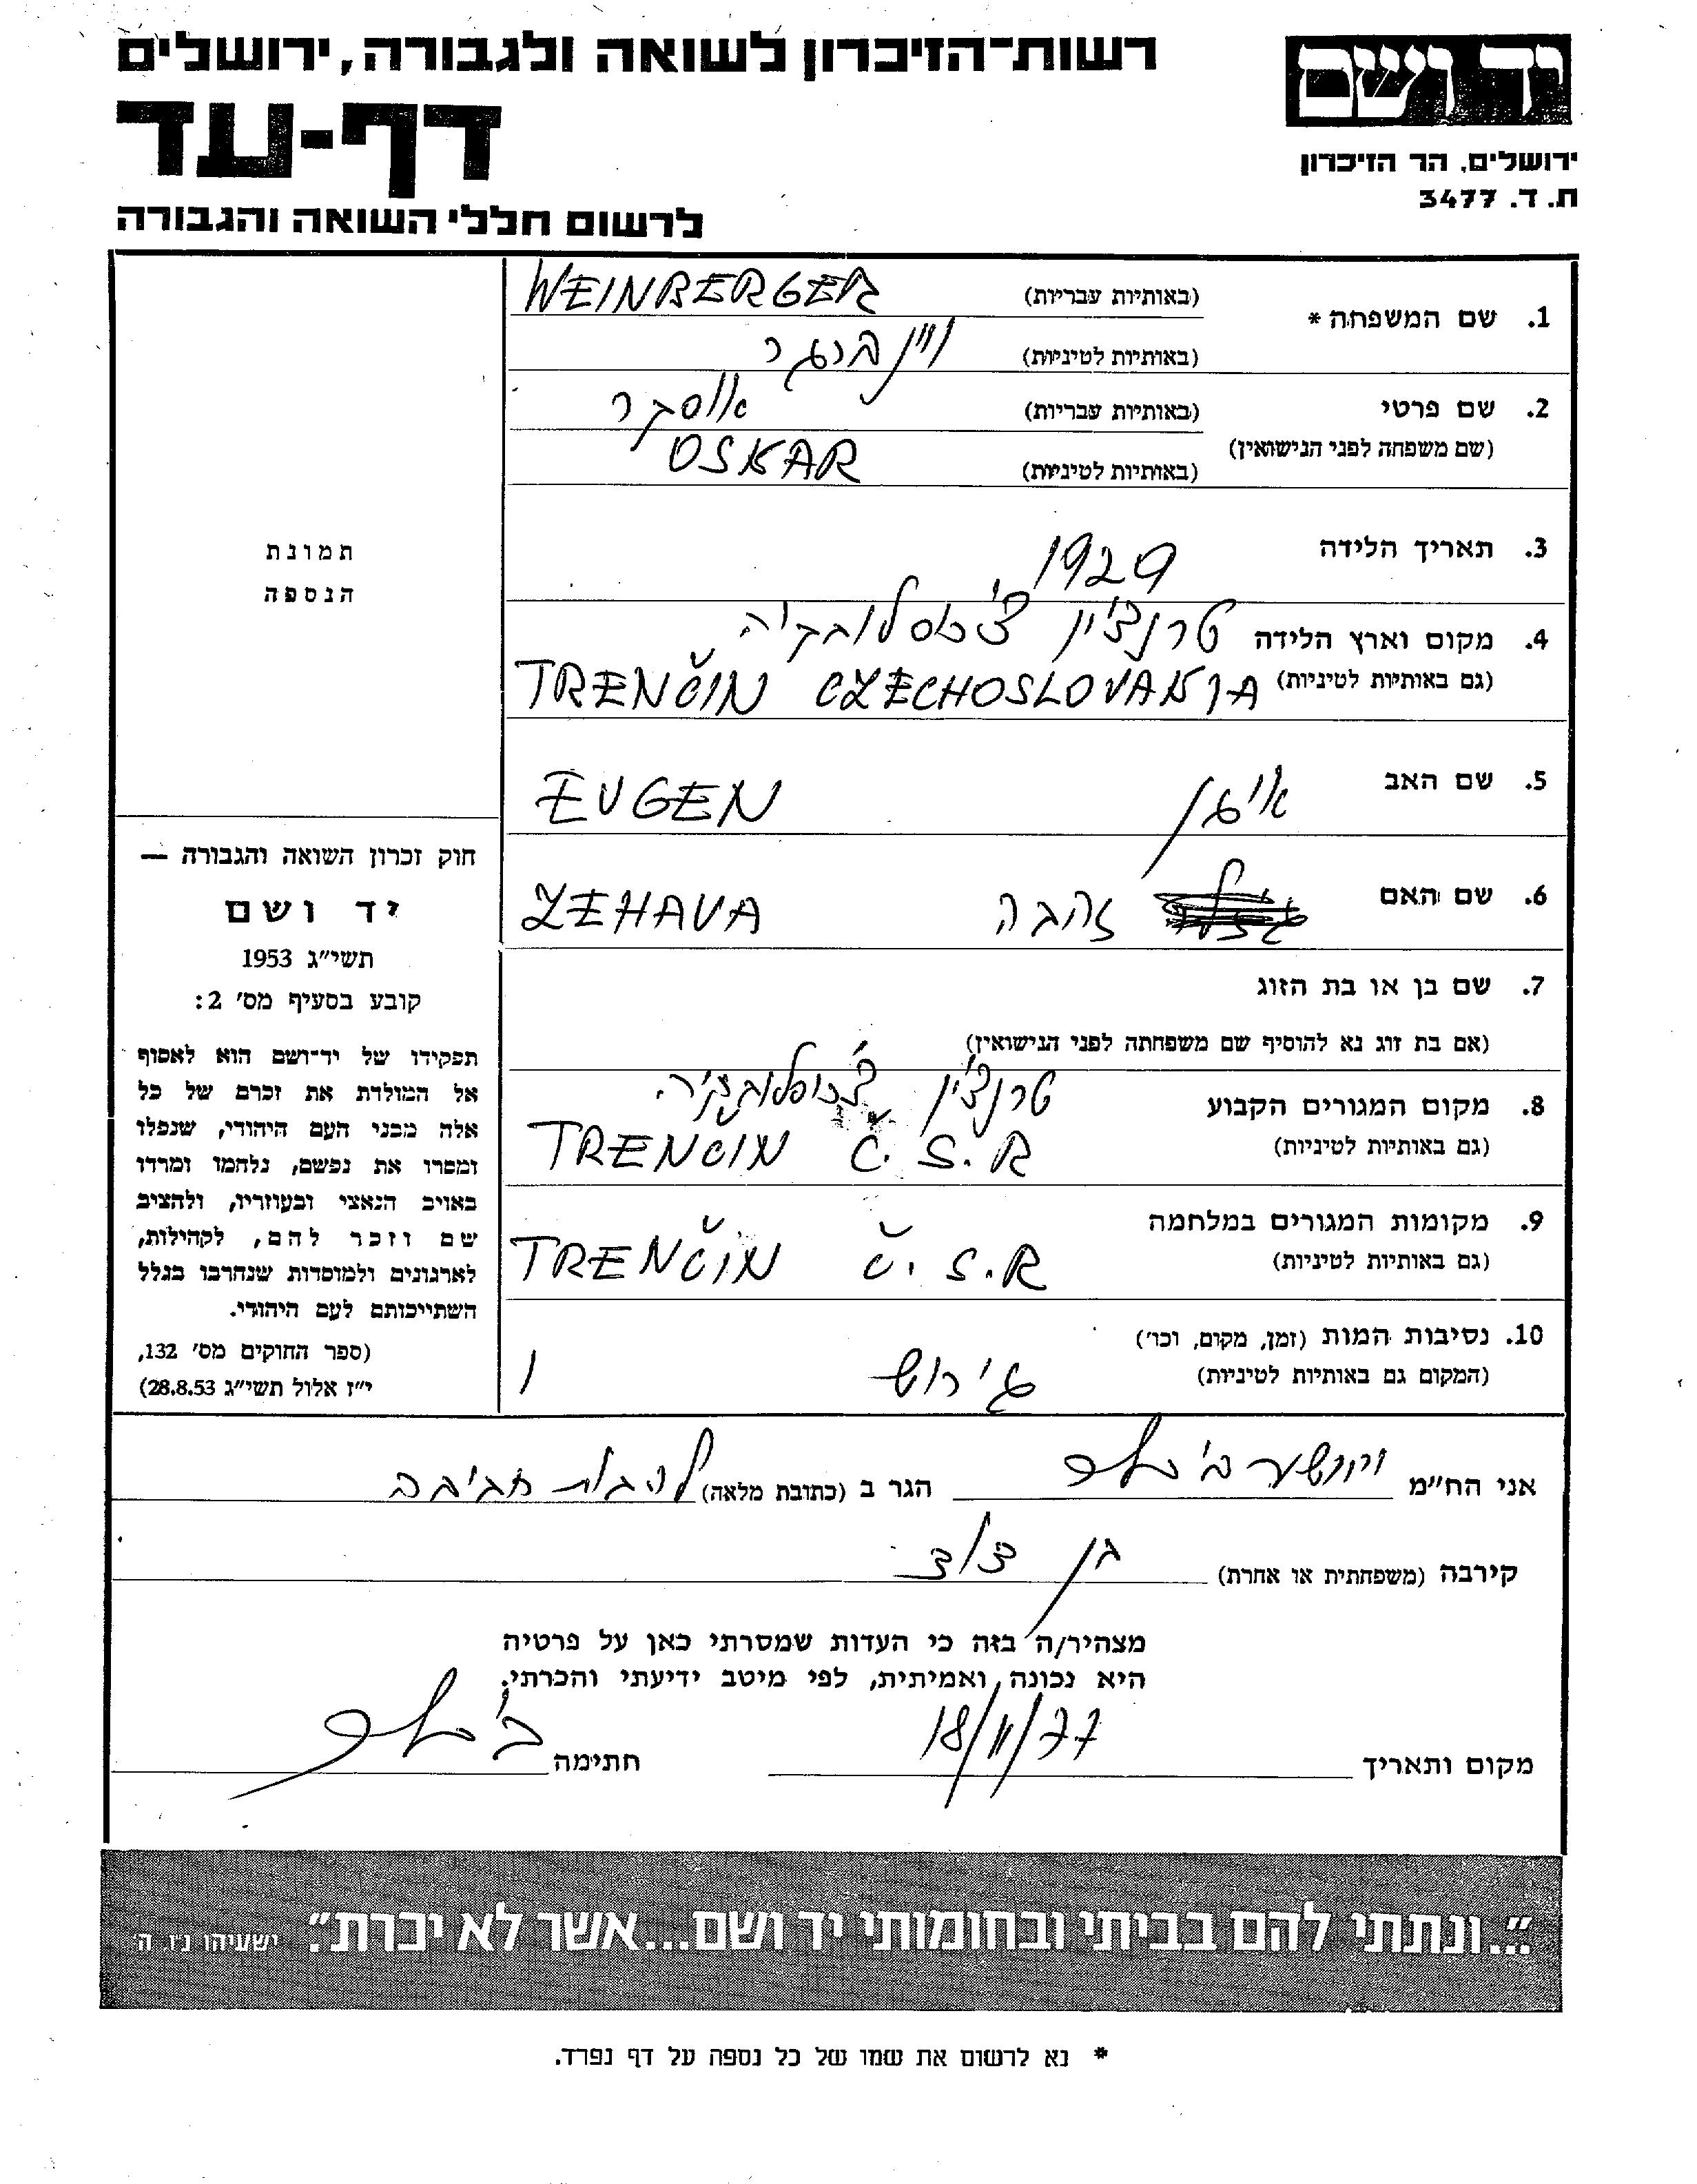 יד ושם
ירושלים, הר הזיכרון
ת. ד. 3477
רשות־הזיכרון לשואה ולגבורה, ירושלים
דף-עד
לרשום חללי השואה והגבורה
1. שם המשפחה * (באותיות עבריות) WEINBERGER
(באותיות לטיניות) ויינברגר
2. שם פרטי (באותיות עבריות) אוסקר
(שם משפחה לפני הנישואין) (באותיות לטיניות) OSKAR
3. תאריך הלידה 1929
4. מקום וארץ הלידה טרנצ'ין צ'כוסלובקיה
(גם באותיות לטיניות) TRENČIN CZECHOSLOVAKIA
5. שם האב אויגן EUGEN
6. שם האם זהבה ZEHAVA
7. שם בן או בת הזוג
(אם בת זוג נא להוסיף שם משפחתה לפני הנישואין)
8. מקום המגורים הקבוע טרנצ'ין צ'כוסלובקיה
(גם באותיות לטיניות) TRENČIN Č.S.R
9. מקומות המגורים במלחמה
(גם באותיות לטיניות) TRENČIN Č.S.R
10. נסיבות המות (זמן, מקום, וכו')
(המקום גם באותיות לטיניות) גירוש
תמונת
הנספה
חוק זכרון השואה והגבורה —
יד ושם
תשי״ג 1953
קובע בסעיף מס' 2:
תפקידו של יד־ושם הוא לאסוף
אל המולדת את זכרם של כל
אלה מבני העם היהודי, שנפלו
ומסרו את נפשם, נלחמו ומרדו
באויב הנאצי ובעוזריו, ולהציב
שם וזכר להם, לקהילות,
לארגונים ולמוסדות שנחרבו בגלל
השתייכותם לעם היהודי.
(ספר החוקים מס' 132,
י״ז אלול תשי״ג 28.8.53)
אני הח״מ הגר ב (כתובת מלאה) להבות חביבה
קירבה (משפחתית או אחרת) בן דוד
מצהיר/ה בזה כי העדות שמסרתי כאן על פרטיה
היא נכונה ואמיתית, לפי מיטב ידיעתי והכרתי.
מקום ותאריך 18/11/77 חתימה
"...ונתתי להם בביתי ובחומותי יד ושם...אשר לא יכרת". ישעיהו נ״ו ה'
* נא לרשום את שמו של כל נספה על דף נפרד.